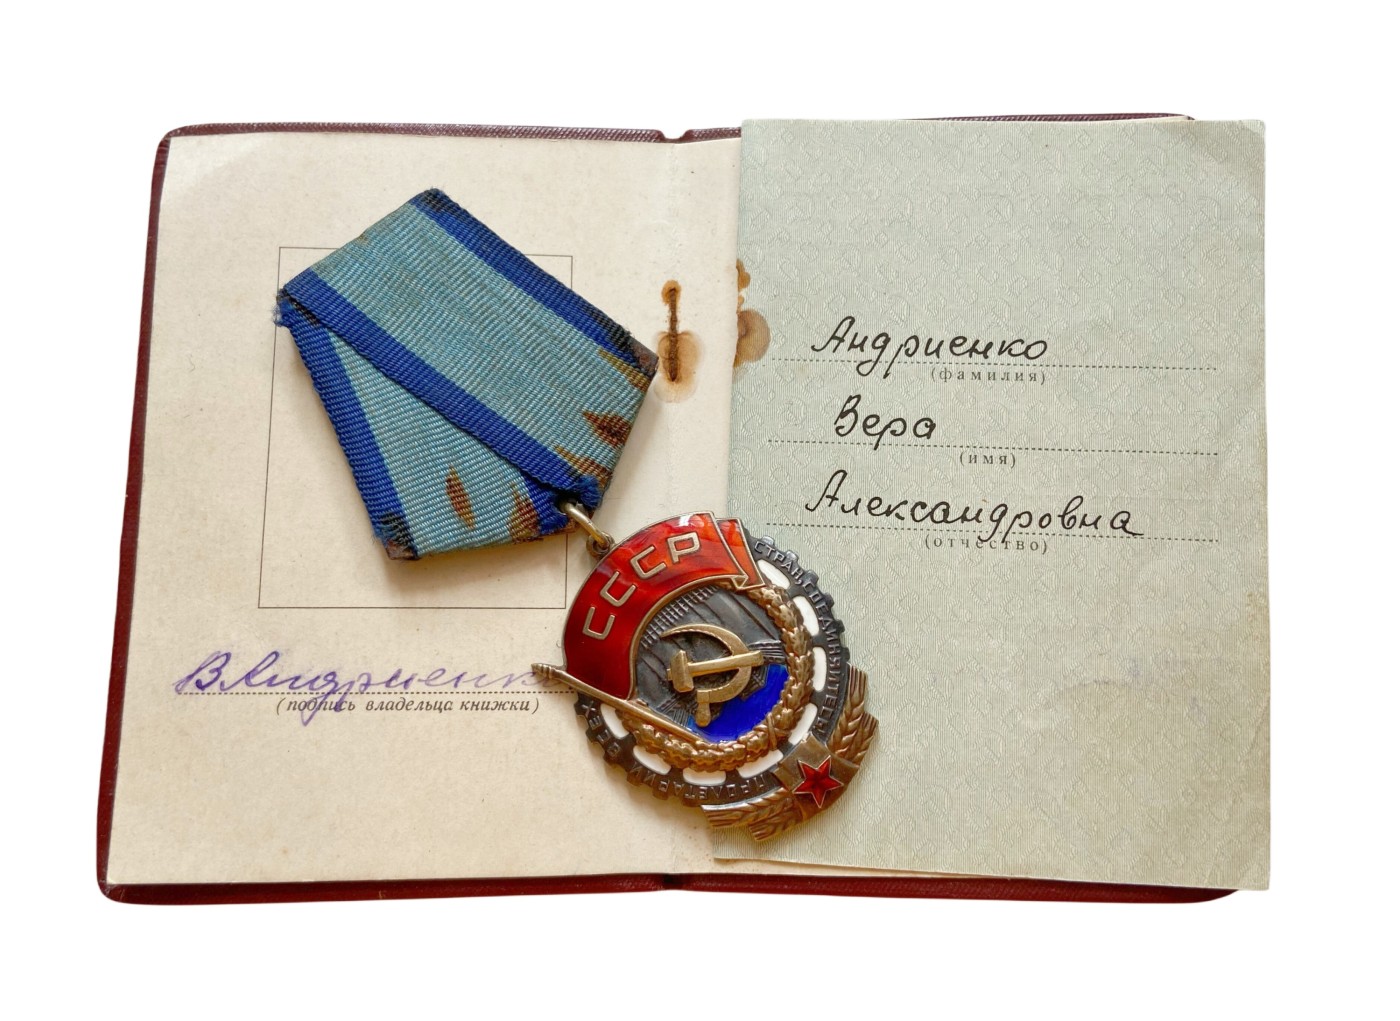 Андриенко
(фамилия)
Вера
(имя)
Александровна
(отчество)
В Андриенк
(подпись владельца книжки)
СССР
ПРОЛЕТАРИИ ВСЕХ СТРАН, СОЕДИНЯЙТЕСЬ